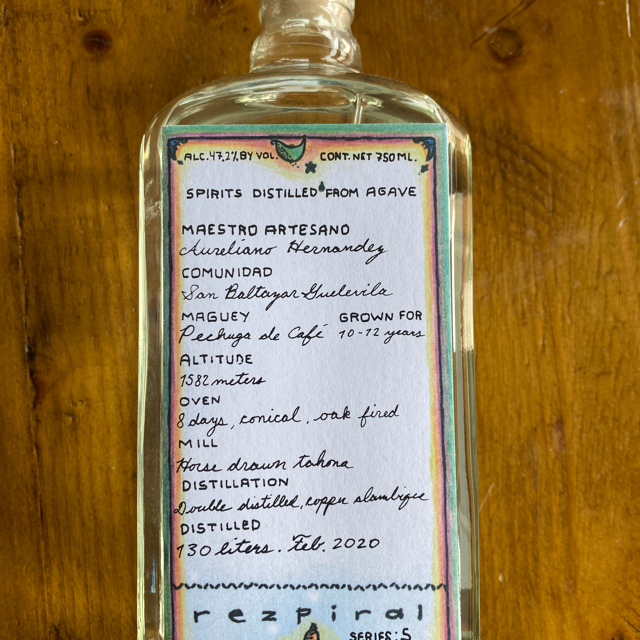 ALC.47.2% BY VOL. CONT. NET 750 ML.
SPIRITS DISTILLED FROM AGAVE
MAESTRO ARTESANO
Aureliano Hernandez
COMUNIDAD
San Baltazar Guelavila
MAGUEY GROWN FOR
Pechuga de Café 10-12 years
ALTITUDE
1582 meters
OVEN
8 days, conical, oak fired
MILL
Horse drawn tahona
DISTILLATION
Double distilled, copper alambique
DISTILLED
130 liters. Feb. 2020
rezpiral
SERIES: 5